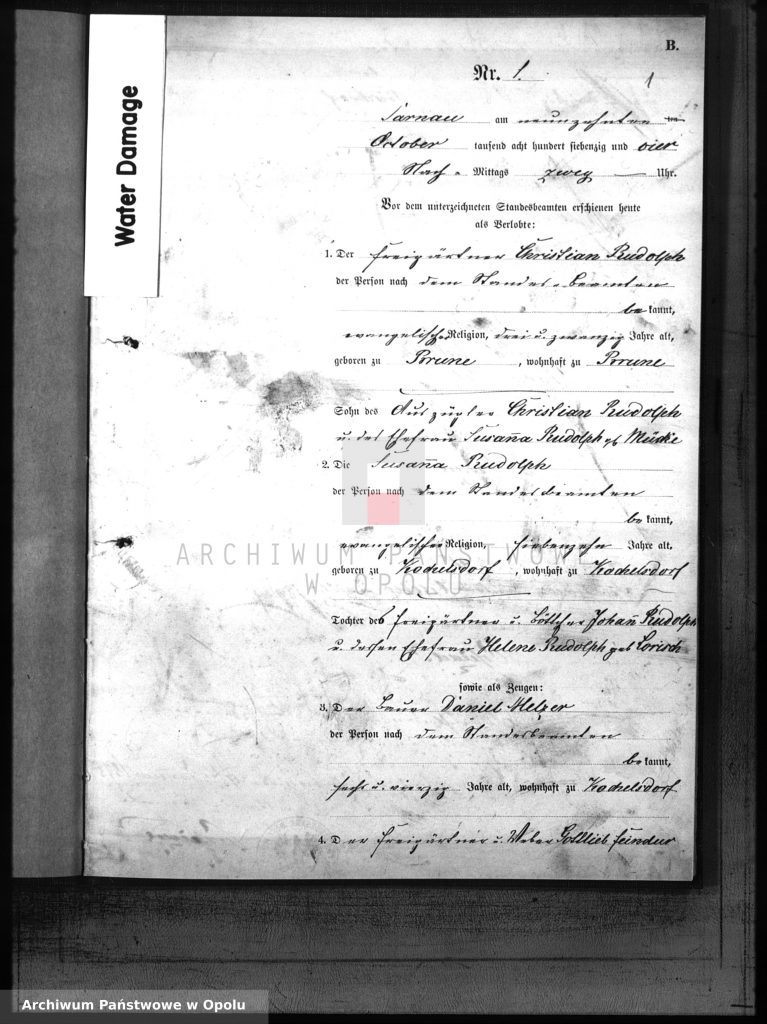 B.
Nr. 1.
1
Water Damage
Tarnau am neunzehnten ten
October tausend acht hundert siebenzig und vier
Nach - Mittags zwey Uhr.
Vor dem unterzeichneten Standesbeamten erschienen heute
als Verlobte:
1. Der Freigärtner Christian Rudolph
der Person nach dem Standes-beamten
be kannt,
evangelischer Religion, drei u. zwanzig Jahre alt,
geboren zu Brune, wohnhaft zu Brune
Sohn des Auszügler Christian Rudolph
u. des Ehefrau Susanna Rudolph geb Mücke
2. Die Susanna Rudolph
der Person nach dem Standesbeamten
be kannt,
evangelischer Religion, siebenzehn Jahre alt,
geboren zu Kochelsdorf, wohnhaft zu Kochelsdorf
Tochter des Freigärtner u. Böttcher Johann Rudolph
u. dessen Ehefrau Helene Rudolph geb Lorisch
sowie als Zeugen:
3. Der Bauer Daniel Melzer
der Person nach dem Standesbeamten
be kannt,
sechs u. vierzig Jahre alt, wohnhaft zu Kochelsdorf
4. Der Freigärtner u. Weber Gottlieb
ARCHIWUM PAŃSTWOWE
W OPOLU
Archiwum Państwowe w Opolu